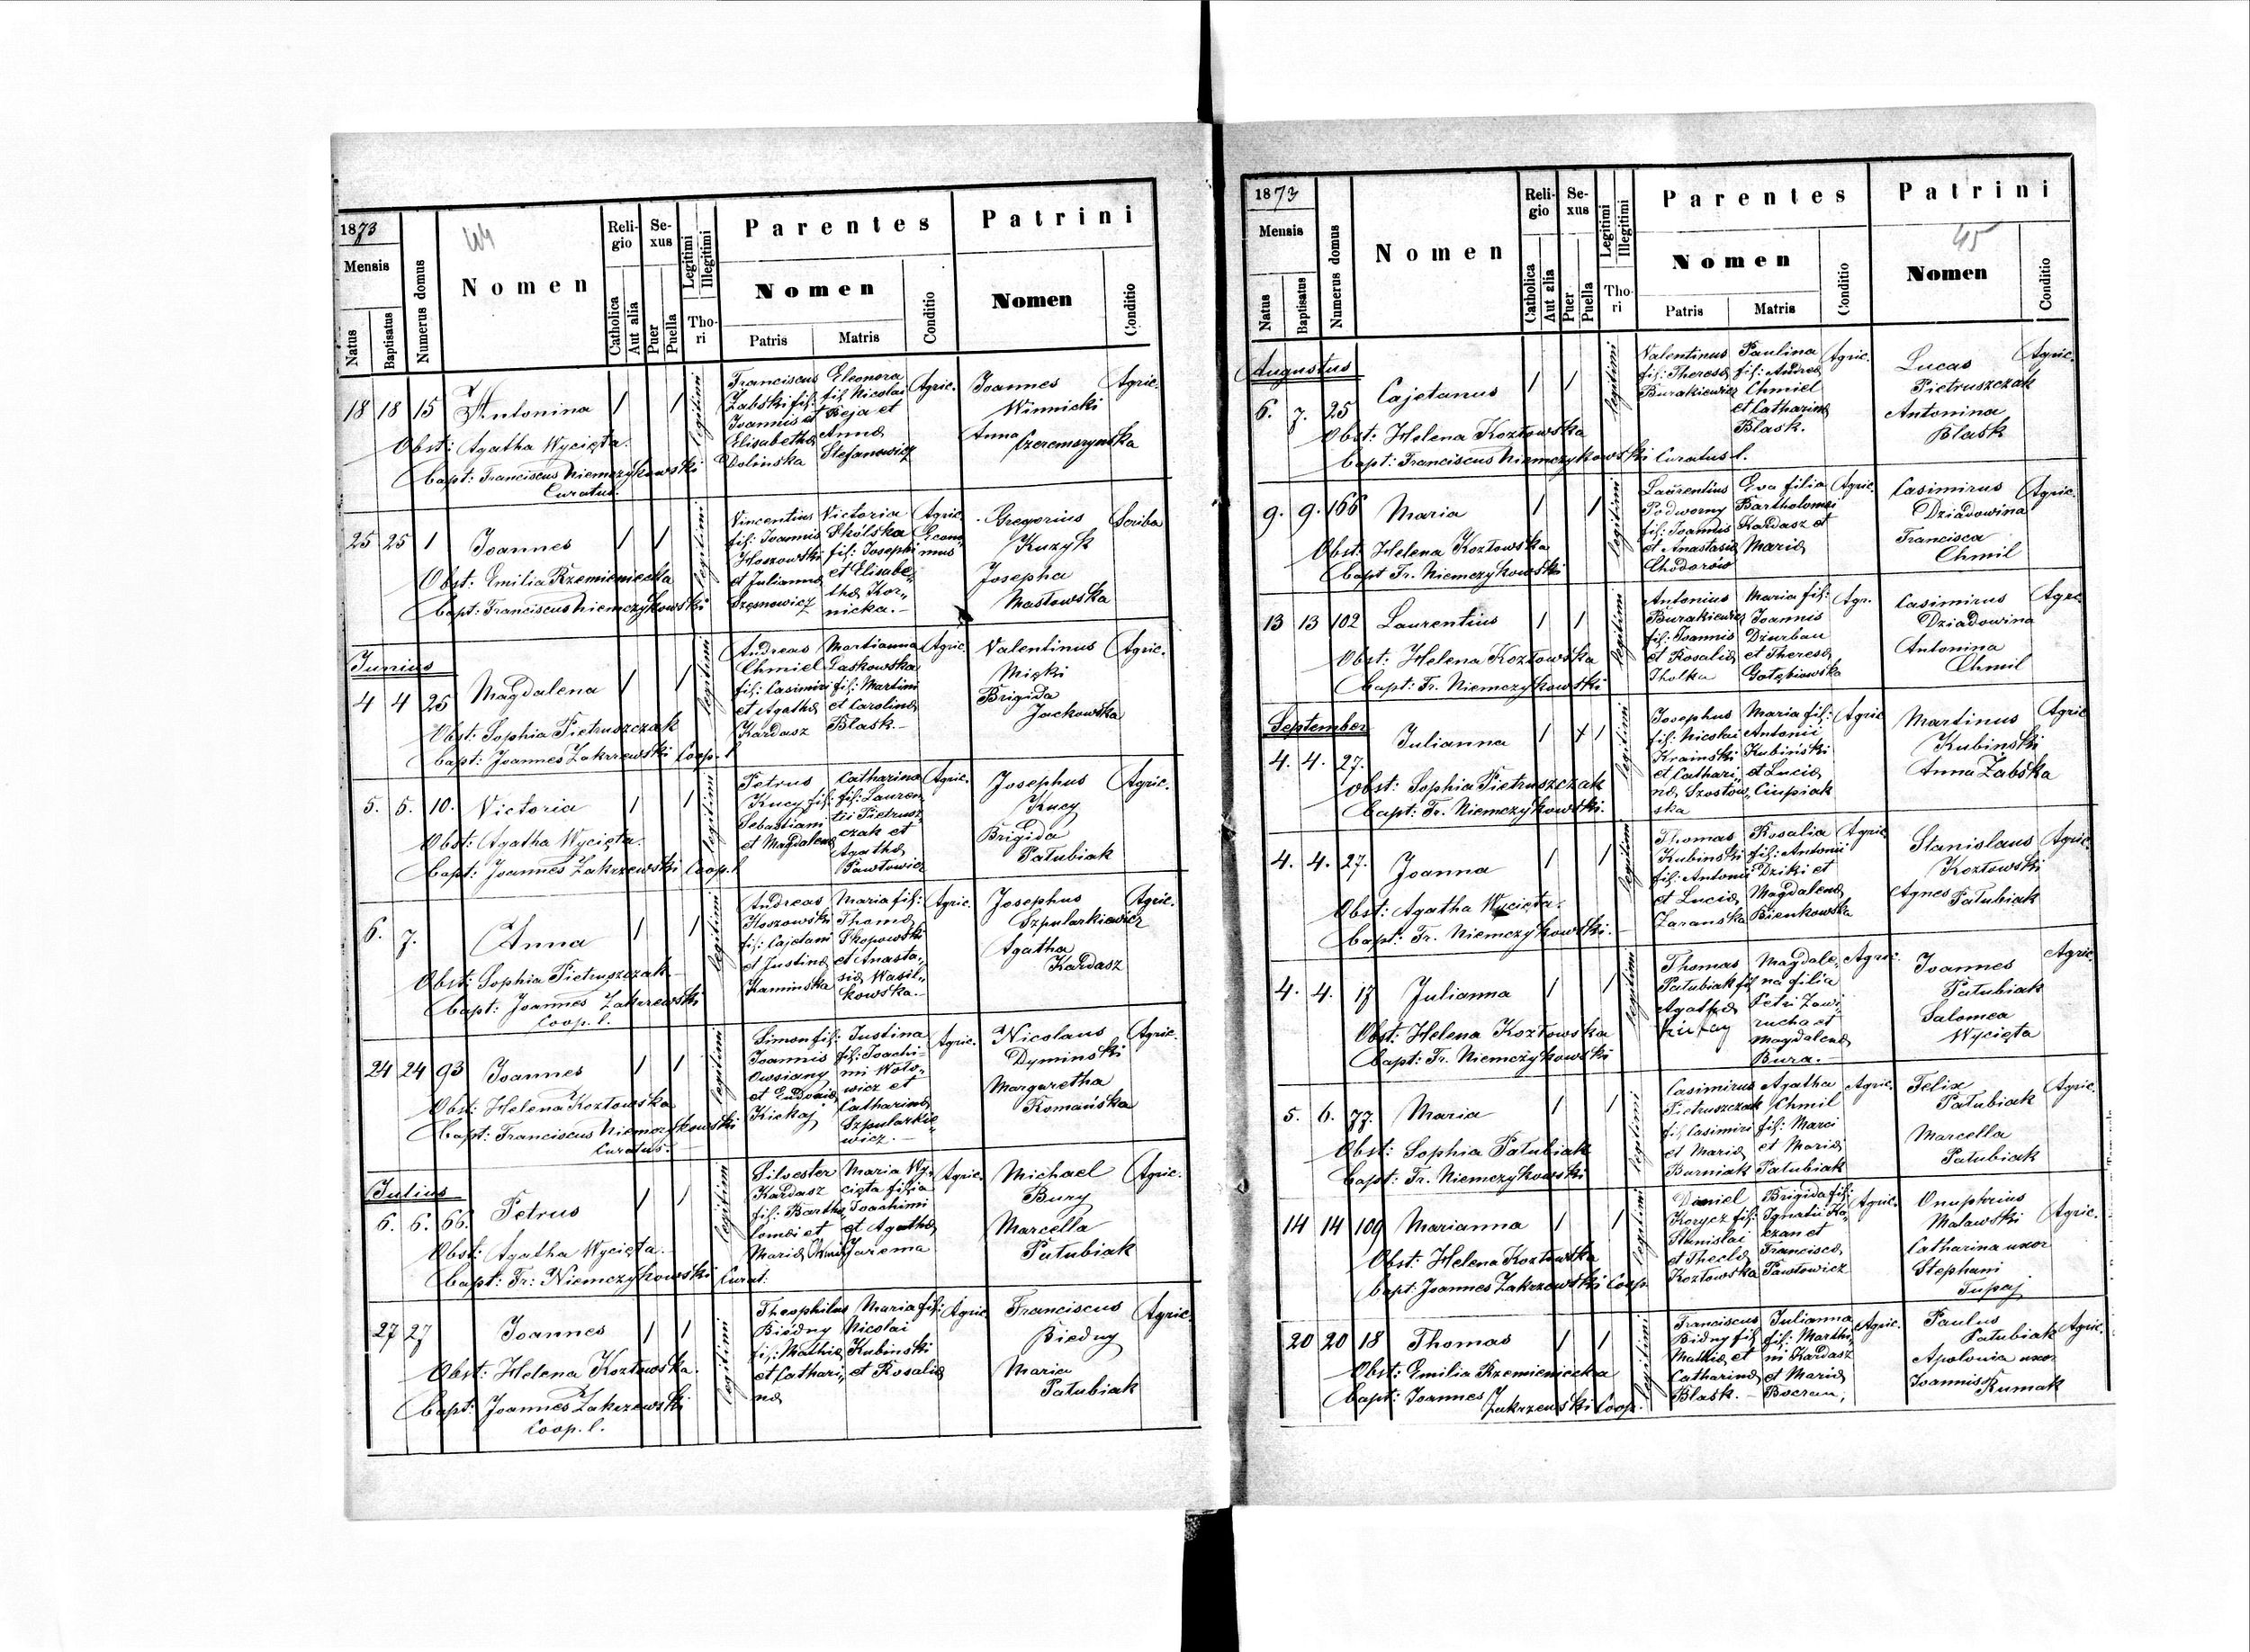 1873
44
Mensis
Natus
Baptisatus
Numerus domus
Nomen
Religio
Catholica
Aut alia
Sexus
Puer
Puella
Legitimi
Illegitimi
Thori
Parentes
Nomen
Patris
Matris
Conditio
Patrini
Nomen
Conditio
18 18 15 Antonina / / legitimi
Obst: Agatha Wycięta.
Bapt: Franciscus Niemczykowski
Curatus.
Franciscus
Żabski fil:
Joannis et
Elisabetha
Dolinska
Eleonora
fil Nicolai
Beja et
Anna
Stefanowicz
Agric.
Joannes
Winnicki
Anna
Czeremszynska
Agric.
25 25 1 Joannes / / legitimi
Obst: Emilia Krzemieniecka
Bapt: Franciscus Niemczykowski
Vincentius
fil: Joannis
Hoszowski
et Julianna
Szesnowicz
Victoria
Skólska
fil: Josephi
et Elisabe„
tha Kor„
nicka.–
Agric.
Econo„
mus
Gregorius
Kuzyk
Josepha
Masłowska
Scriba
Junius
4 4 25 Magdalena / / legitimi
Obst: Sophia Pietruszczak
Bapt: Joannes Zakrzewski Coop. l
Andreas
Chmiel
fil: Casimiri
et Agatha
Kardasz
Martianna
Laskowska
fil: Martini
et Carolina
Blask.–
Agric.
Valentinus
Mięki
Brigida
Jackowska
Agric.
5. 5. 10. Victoria / / legitimi
Obst: Agatha Wycięta.
Bapt: Joannes Zakrzewski Coop. l
Petrus
Kucy fil:
Sebastiani
et Magdalena
Catharina
fil: Lauren
tii Pietrusz„
czak et
Agatha
Pawłowicz
Agric.
Josephus
Kucy
Brigida
Patubiak
Agric.
6. 7. Anna / / legitimi
Obst: Sophia Pietruszczak
Bapt: Joannes Zakrzewski
Coop. l.
Andreas
Hoszowski
fil: Cajetani
et Justina
Kaminska
Maria fil:
Thoma
Skopowski
et Anasta„
sia Wasil„
kowska.–
Agric.
Josephus
Szpularkiewicz
Agatha
Kardasz
Agric.
24 24 93 Joannes / / legitimi
Obst: Helena Kozłowska
Bapt: Franciscus Niemczykowski
Curatus.
Simon fil:
Joannis
Owsiany
et Eudoxia
Kickaj
Justina
fil: Joachi–
mi Woło–
wicz et
Catharina
Szpularkie„
wicz.–
Agric.
Nicolaus
Dyminski
Margaretha
Romańska
Agric.
Julius
6. 6. 66. Petrus / / legitimi
Obst: Agatha Wycięta.
Bapt: Fr: Niemczykowski Curat:
Silvester
Kardasz
fil: Bartho„
lomei et
Maria
Maria Wy„
cięta filia
Joachimi
et Agatha
Jarema
Agric.
Michael
Bury
Marcella
Patubiak
Agric.
27 27 Joannes / / legitimi
Obst: Helena Kozłowska.
Bapt: Joannes Zakrzewski
Coop. l.
Theophilus
Biedny
fil: Mathia
et Cathari„
na
Maria fil:
Nicolai
Kubinski
et Rosalia
Agric.
Franciscus
Biedny
Maria
Patubiak
Agric.
1873
45
Mensis
Natus
Baptisatus
Numerus domus
Nomen
Religio
Catholica
Aut alia
Sexus
Puer
Puella
Legitimi
Illegitimi
Thori
Parentes
Nomen
Patris
Matris
Conditio
Patrini
Nomen
Conditio
Augustus
6. 7. 25 Cajetanus / / legitimi
Obst: Helena Kozłowska
Bapt: Franciscus Niemczykowski Curatus l.
Valentinus
fil: Theresa
Burakiewicz
Paulina
fil: Andrea
Chmiel
et Catharina
Blask.
Agric.
Lucas
Pietruszczak
Antonina
Blask
Agric.
9. 9. 166 Maria / / legitimi
Obst: Helena Kozłowska
Bapt Fr. Niemczykowski
Laurentius
Podworny
fil: Joannis
et Anastasia
Chodorow
Eva filia
Bartholomei
Kardasz et
Maria
Agric.
Casimirus
Dziadowina
Francisca
Chmil
Agric.
13 13 102 Laurentius / / legitimi
Obst: Helena Kozłowska
Bapt: Fr. Niemczykowski
Antonius
Burakiewicz
fil: Joannis
et Rosalia
Tholka
Maria fil:
Joannis
Dziurban
et Theresa
Gołębiowska
Agr.
Casimirus
Dziadowina
Antonina
Chmil
Agric.
September
4. 4. 27. Julianna / / legitimi
Obst: Sophia Pietruszczak
Bapt: Fr. Niemczykowski.
Josephus
fil: Nicolai
Krainski
et Cathari„
na, Szostow„
ska
Maria fil:
Antonii
Kubiński
et Lucia
Ciupiak
Agric
Martinus
Kubinski
Anna Żabska
Agric
4. 4. 27. Joanna / / legitimi
Obst: Agatha Wycięta.
Bapt: Fr. Niemczykowski.
Thomas
Kubinski
fil: Antonii
et Lucia
Zaranska
Rosalia
fil: Antonii
Dziki et
Magdalena
Bienkowska
Agric
Stanislaus
Kozłowski
Agnes
Patubiak
Agric.
4. 4. 17 Julianna / / legitimi
Obst: Helena Kozłowska
Bapt: Fr. Niemczykowski
Thomas
Patubiak fil
Agatha
Magdale„
na filia
Petri Zawi„
rucha et
Magdalena
Bura.–
Agric.
Joannes
Patubiak
Salomea
Wycięta
Agric.
5. 6. 77. Maria / / legitimi
Obst: Sophia Patubiak
Bapt: Fr. Niemczykowski
Casimirus
Pietruszczak
fil Casimiri
et Maria
Burniak
Agatha
Chmil
fil: Marci
et Maria
Patubiak
Agric.
Felix
Patubiak
Marcella
Patubiak
Agric.
14 14 109 Marianna / / legitimi
Obst: Helena Kozłowska
Bapt: Joannes Zakrzewski Coop.
Daniel
Korycz fil:
Stanislai
et Thecla
Kozłowska
Brigida fil:
Ignatii Ka„
czan et
Francisca
Pawłowicz
Agric.
Onuphrius
Maławski
Catharina uxor
Stephani
Tupaj
Agric.
20 20 18 Thomas / / legitimi
Obst: Emilia Krzemieniecka
Bapt: Joannes Zakrzewski Coop.
Franciscus
Bidny fil
Mathia et
Catharina
Blask.–
Julianna
fil: Marthi„
ni Kardasz
et Maria
Agric.
Paulus
Patubiak
Apolonia uxor
Joannis
Rumak
Agric.